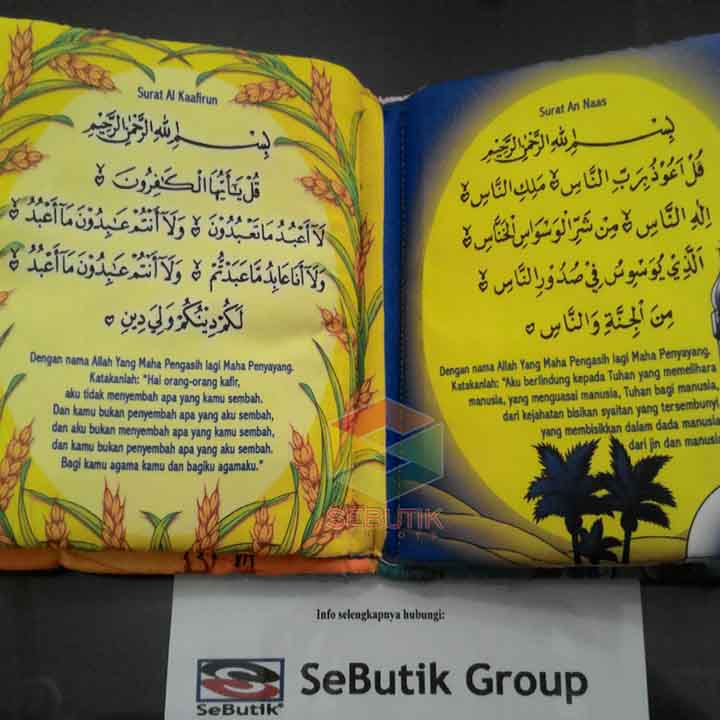 Surat Al Kaafirun
بِسْمِ اللهِ الرَّحْمٰنِ الرَّحِيْمِ
قُلْ يَٰٓأَيُّهَا الْكَٰفِرُونَ
لَآ أَعْبُدُ مَا تَعْبُدُونَ وَلَآ أَنْتُمْ عَٰبِدُوْنَ مَآ أَعْبُدُ
وَلَآ أَنَا عَابِدٌ مَّا عَبَدْتُّمْ وَلَآ أَنْتُمْ عَٰبِدُوْنَ مَآ أَعْبُدُ
لَكُمْ دِيْنُكُمْ وَلِيَ دِيْنِ
Dengan nama Allah Yang Maha Pengasih lagi Maha Penyayang.
Katakanlah: "Hai orang-orang kafir,
aku tidak menyembah apa yang kamu sembah.
Dan kamu bukan penyembah apa yang aku sembah,
dan aku bukan menyembah apa yang kamu sembah,
dan kamu bukan penyembah apa yang aku sembah.
Bagi kamu agama kamu dan bagiku agamaku."
Surat An Naas
بِسْمِ اللهِ الرَّحْمٰنِ الرَّحِيْمِ
قُلْ اَعُوْذُ بِرَبِّ النَّاسِ مَلِكِ النَّاسِ
اِلٰهِ النَّاسِ مِنْ شَرِّ الْوَسْوَاسِ الْخَنَّاسِ
الَّذِيْ يُوَسْوِسُ فِيْ صُدُوْرِ النَّاسِ
مِنَ الْجِنَّةِ وَالنَّاسِ
Dengan nama Allah Yang Maha Pengasih lagi Maha Penyayang.
Katakanlah: "Aku berlindung kepada Tuhan yang memelihara
manusia, yang menguasai manusia, Tuhan bagi manusia,
dari kejahatan bisikan syaitan yang tersembunyi,
yang membisikkan dalam dada manusia
dari jin dan manusia
SEBUTIK
Info selengkapnya hubungi:
SeButik Group
SeButik®